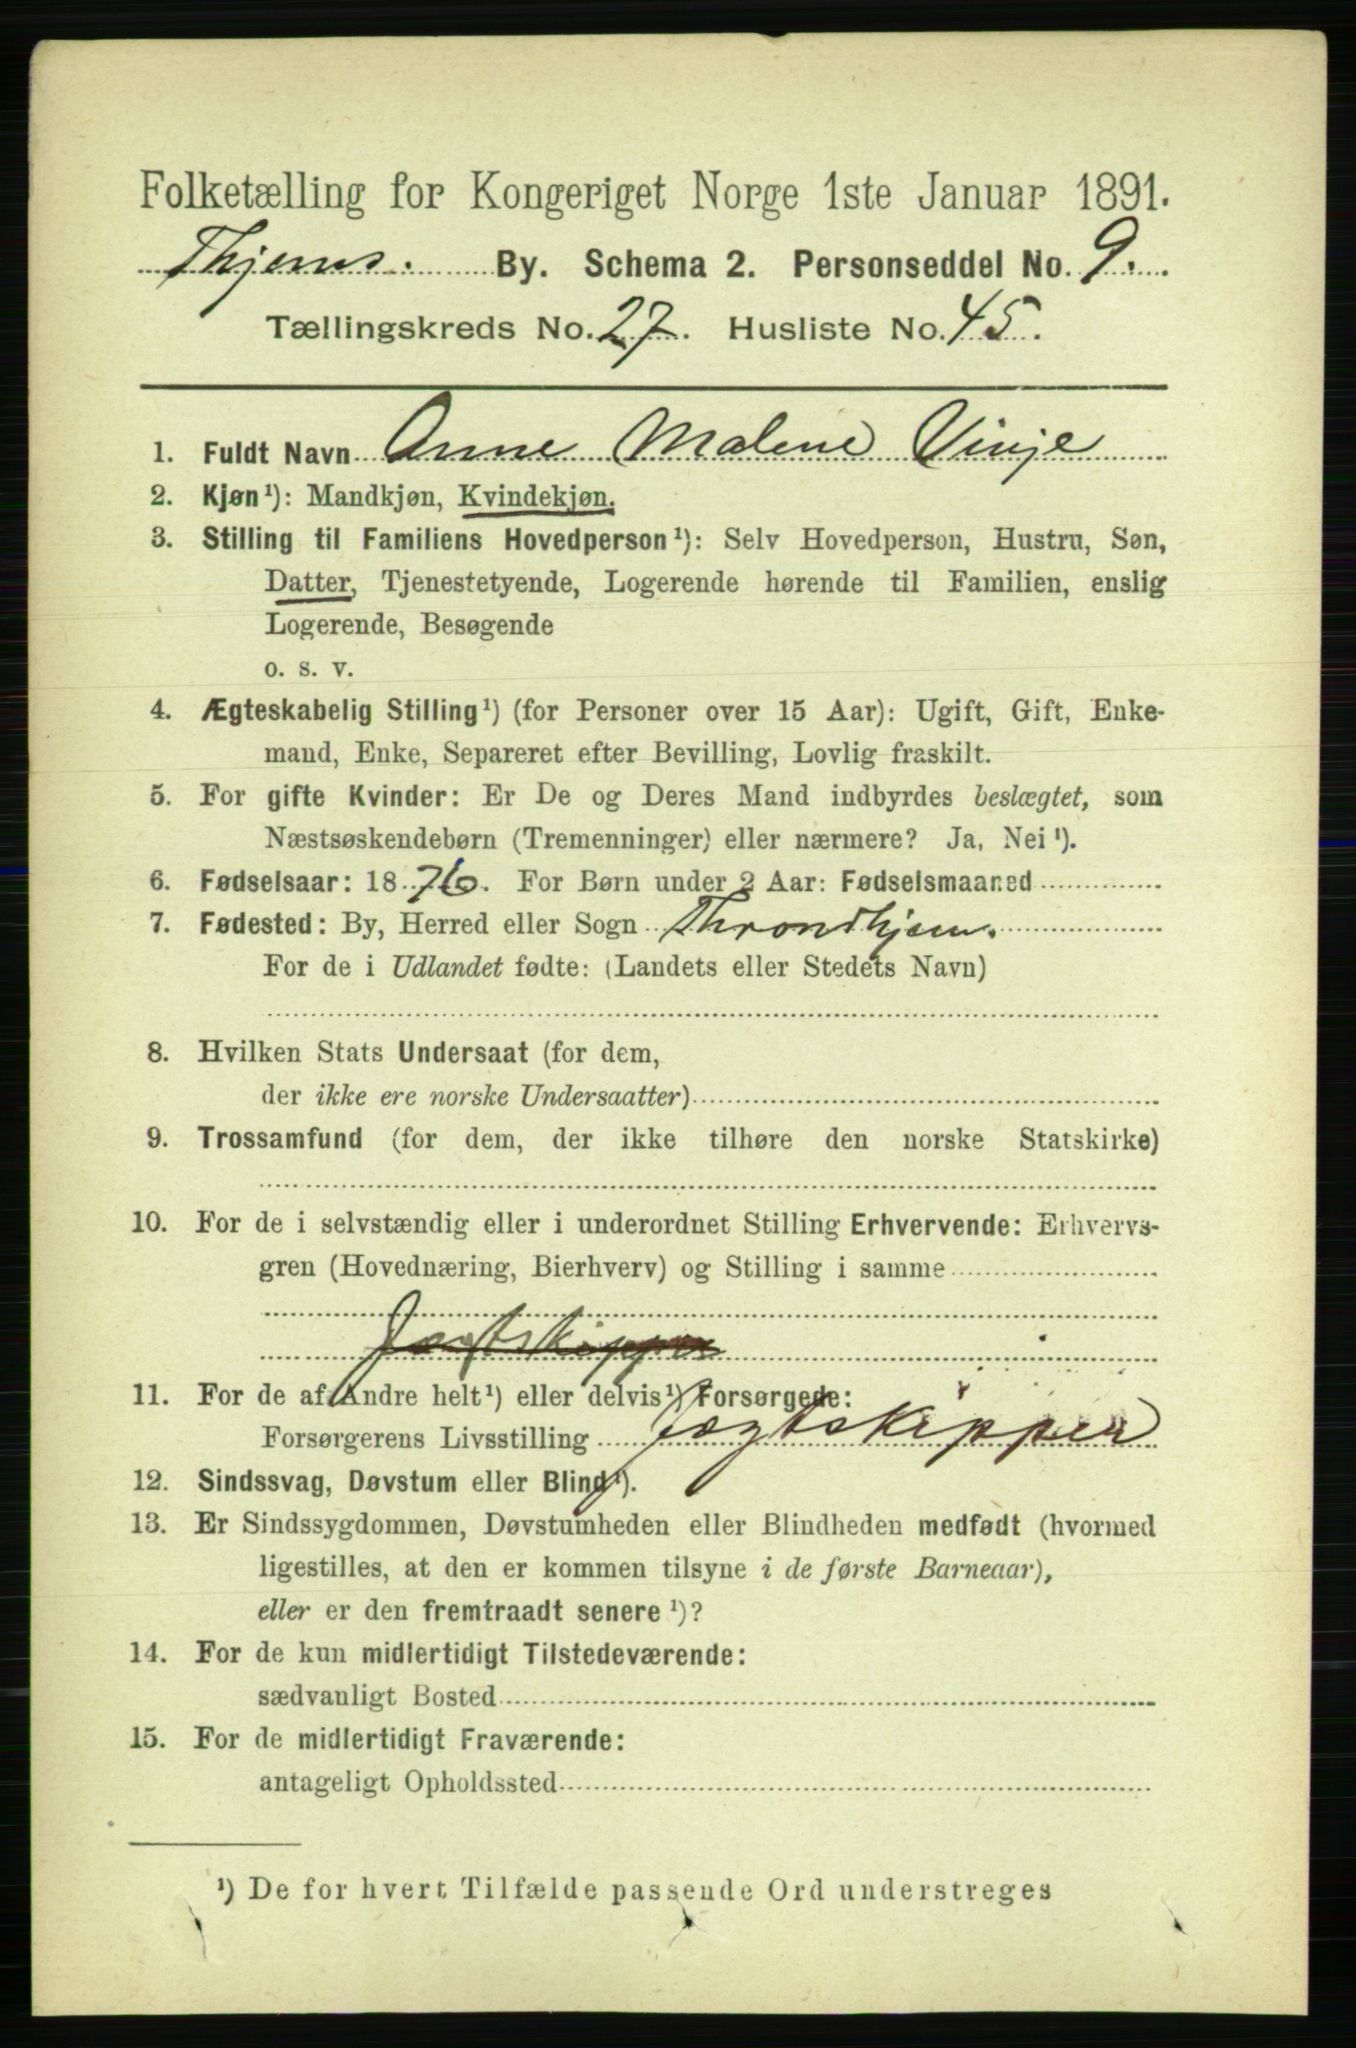 Folketælling for Kongeriget Norge 1ste Januar 1891.
Thjems. By. Schema 2. Personseddel No. 9.
Tællingskreds No. 27. Husliste No. 45.
1. Fuldt Navn Anne Malene Vinje
2. Kjøn¹): Mandkjøn, Kvindekjøn.
3. Stilling til Familiens Hovedperson¹): Selv Hovedperson, Hustru, Søn,
Datter, Tjenestetyende, Logerende hørende til Familien, enslig
Logerende, Besøgende
o. s. v.
4. Ægteskabelig Stilling¹) (for Personer over 15 Aar): Ugift, Gift, Enke-
mand, Enke, Separeret efter Bevilling, Lovlig fraskilt.
5. For gifte Kvinder: Er De og Deres Mand indbyrdes beslægtet, som
Næstsøskendebørn (Tremenninger) eller nærmere? Ja, Nei¹).
6. Fødselsaar: 1876. For Børn under 2 Aar: Fødselsmaaned
7. Fødested: By, Herred eller Sogn Throndhjem.
For de i Udlandet fødte: (Landets eller Stedets Navn)
8. Hvilken Stats Undersaat (for dem,
der ikke ere norske Undersaatter)
9. Trossamfund (for dem, der ikke tilhøre den norske Statskirke)
10. For de i selvstændig eller i underordnet Stilling Erhvervende: Erhvervs-
gren (Hovednæring, Bierhverv) og Stilling i samme
Jægtskipper
11. For de af Andre helt¹) eller delvis¹) Forsørgede:
Forsørgerens Livsstilling Jægtskipper
12. Sindssvag, Døvstum eller Blind¹).
13. Er Sindssygdommen, Døvstumheden eller Blindheden medfødt (hvormed
ligestilles, at den er kommen tilsyne i de første Barneaar),
eller er den fremtraadt senere¹)?
14. For de kun midlertidigt Tilstedeværende:
sædvanligt Bosted
15. For de midlertidigt Fraværende:
antageligt Opholdssted
¹) De for hvert Tilfælde passende Ord understreges